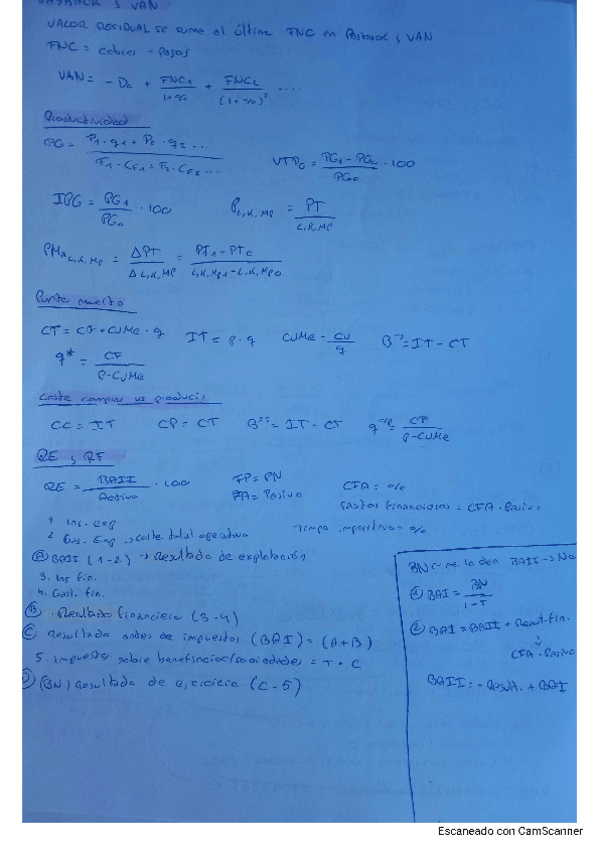 PAYBACK y VAN
VALOR RESIDUAL se suma al último FNC en Payback y VAN
FNC = cobros - pagos
VAN = - D₀ + FNC₁/1+% + FNC₂/(1+%)² ....
Productividad
PG = P₁·q₁ + P₂·q₂ ... / F₁·CF₁ + F₂·CF₂ ...
VTPG = PG₁ - PG₀ / PG₀ · 100
IPG = PG₁/PG₀ · 100
P L,K,MP = PT / L,K,MP
PMa L,K,MP = ΔPT / Δ L,K,MP = PT₁ - PT₀ / L,K,MP₁ - L,K,MP₀
Punto muerto
CT = CF + CVMe · q
IT = p · q
CVMe = CV/q
Bº = IT - CT
q* = CF / P-CVMe
Coste comprar vs producir
CC = IT
CP = CT
Bº = IT - CT
q = CF / P-CVMe
RE y RF
RE = BAII / Activo · 100
FP = PN
FA = Pasivo
CFA = %
Gastos financieros = CFA · Pasivo
1 Ing. exp
2 Gas. Exp → coste total operativo
Tiempo impositivo = %
(A) BAII (1-2) → Resultado de explotación
3. Ing fin.
4. Gast. fin.
(B) Resultado financiero (3-4)
(C) Resultado antes de impuestos (BAI) = (A+B)
5. Impuesto sobre beneficios/sociedades = T · C
(D) (BN) Resultado de ejercicio (C-5)
BN = me lo dan BAII → No
(1) BAI = BN / 1-T
(2) BAI = BAII + Result. fin.
↓
CFA · Pasivo
BAII = - Result. + BAI
Escaneado con CamScanner